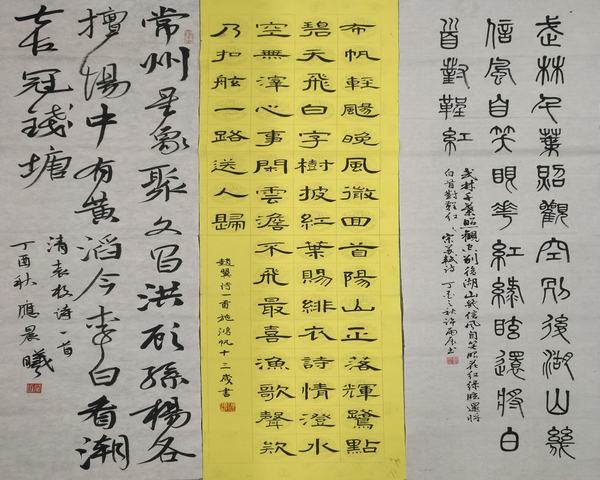 武林千葉照觀空別後湖山幾
信風自笑眼花紅綠眩還將白
首對鞓紅
武林千葉照觀空別後湖山幾信風自笑眼花紅綠眩還將
白首對鞓紅 宋蘇軾詩 丁酉之秋許雨書
布帆輕颺晚風微回首陽山正落輝鷺點
碧天飛白字樹披紅葉賜緋衣詩情澄水
空無滓心事閑雲澹不飛最喜漁歌聲欸
乃扣舷一路送人歸
趙翼詩一首施鴻帆十三歲書
常州星象聚文昌洪顧孫楊各
擅場中有黃滔今李白看潮
七古冠錢塘
清袁枚詩一首
丁酉秋應晨曦